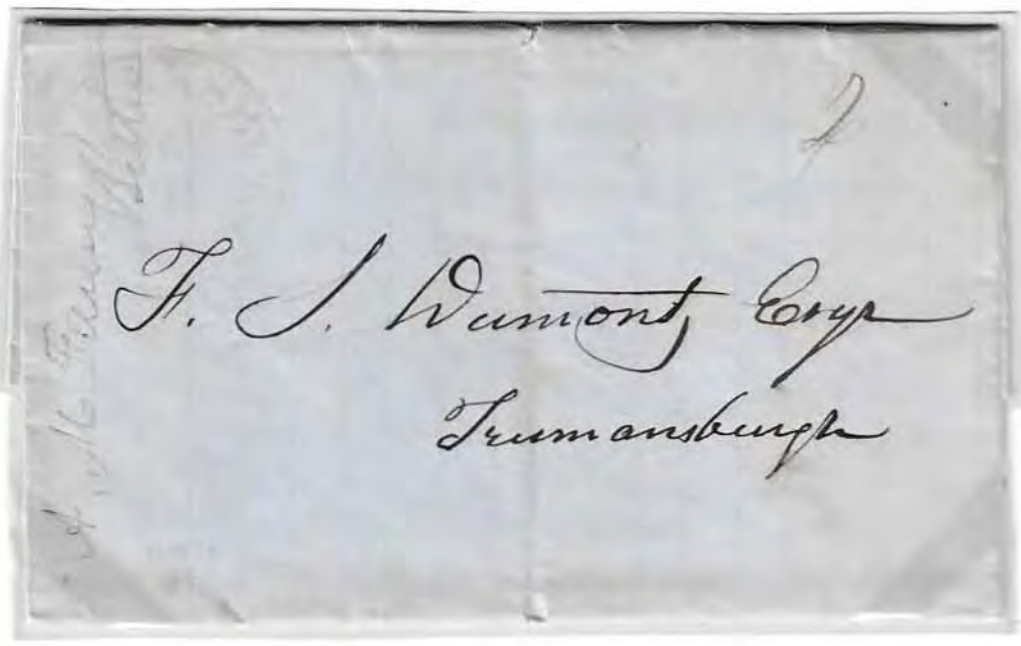 F. S. Dumont, Esqr
Trumansburgh